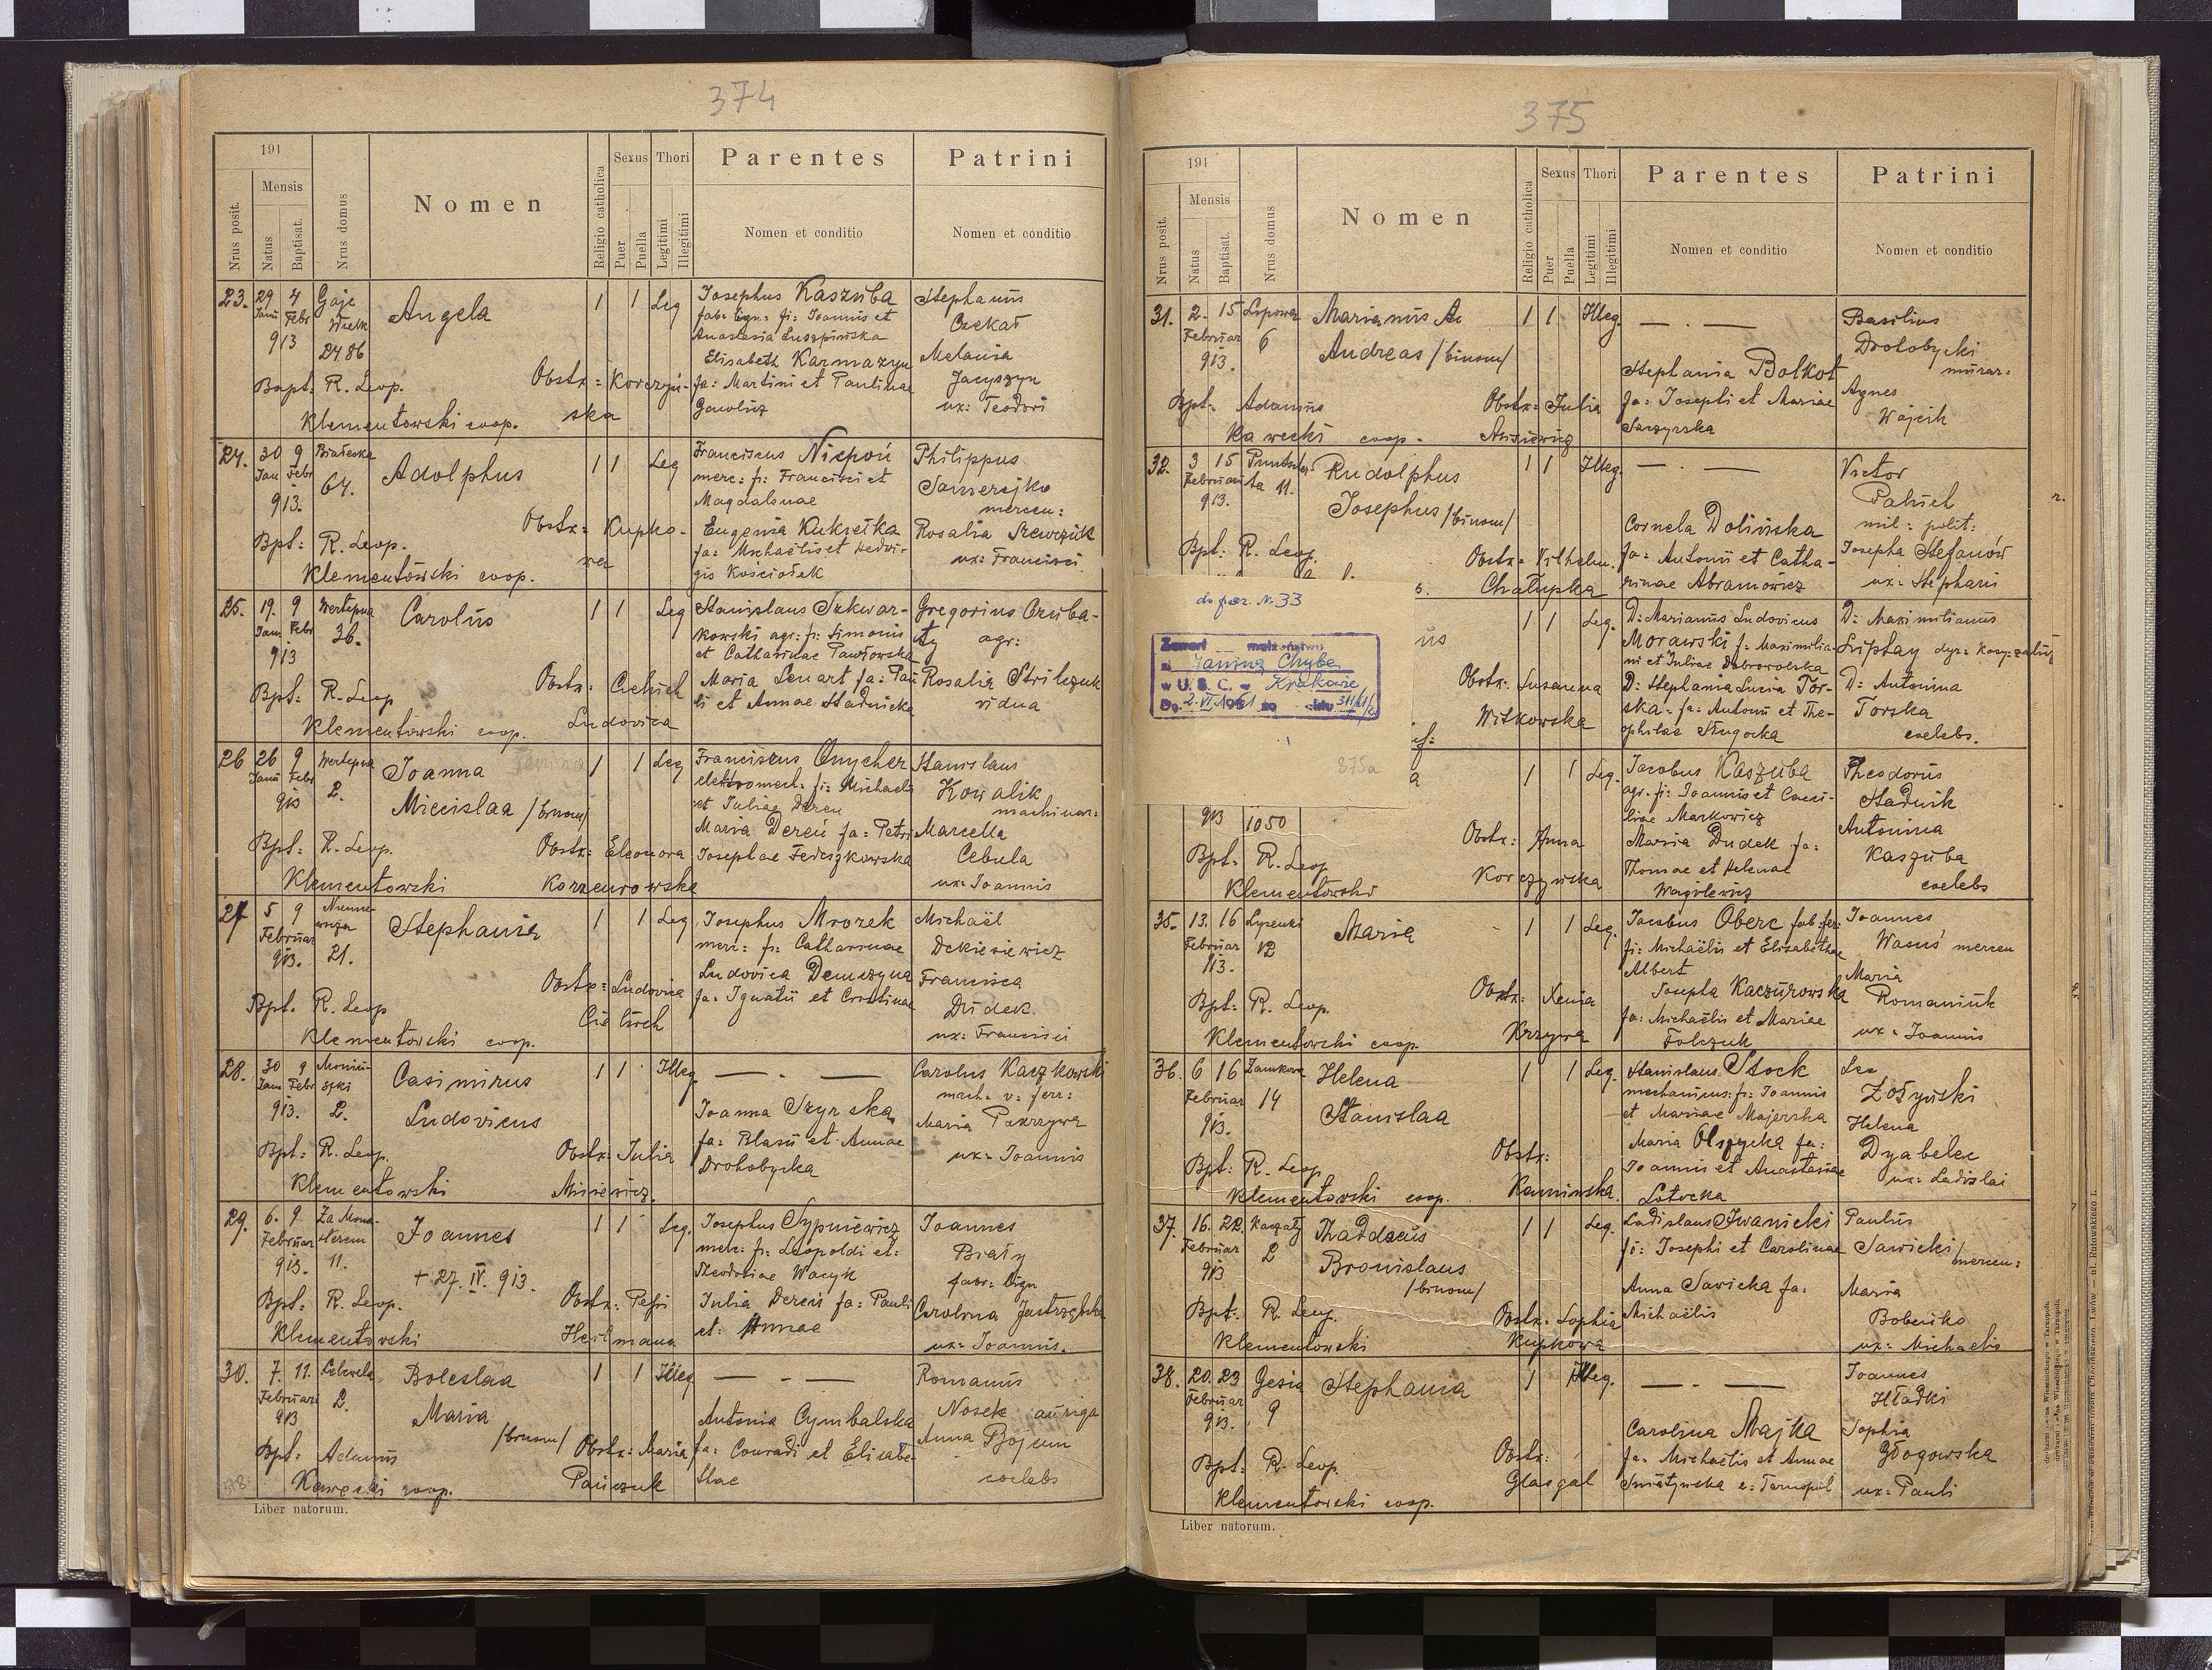 374
191
Mensis
Nrus posit.
Natus
Baptisat.
Nrus domus
Nomen
Religio catholica
Sexus
Puer
Puella
Thori
Legitimi
Illegitimi
Parentes
Nomen et conditio
Patrini
Nomen et conditio
23. 29 4 Gaje Angela 1 1 Leg Josephus Kaszuba Stephanus
Febr fi: Joannis et Czekaj
913 2486 Anastasia
Elisabeth Karmazyn Melania
Bapt: R. Leop. Obstx: Korczyń- fa: Martini et Paulinae Jacyszyn
Klementowski coop. ska ux: Teodori
24. 30 9 Białecka Adolphus 1 1 Leg Franciscus Niepoń Philippus
Jan Febr 64. merc: fi: Francisci et Samerejko
913. Magdalenae mercen:
Obstx: Kupko- Eugenia Kukiełka Rosalia Szewczuk
Bpt: R. Leop. wa fa: Michaëlis et Hedvi- ux: Francisci
Klementowski coop. gis Kościołek
25. 19. 9 Wertepna Carolus 1 1 Leg Stanislaus Sukwar- Gregorius Czuba-
Jan Febr 36. kowski agr: fi: Simonis ty agr:
913 et Catharinae Pawłowska
Obstx: Cielich Maria Lenart fa: Pau Rosalia Strilczuk
Bpt: R. Leop Ludovica li et Annae Stadnicka vidua
Klementowski coop.
26 26 9 Wertepna Joanna 1 1 Leg Franciscus Onycher Stanislaus
Febr 2. Miecislaa /binom/ elektromech. fi: Michaelis Kowalik
913 et Juliae Dereń machinar:
Maria Dereń fa: Petri Marcella
Bpt: R. Leop. Obstx: Eleonora Josephae Fedeszkowska Cebula
Klementowski Korzeniowska ux: Joannis
27 5 9 Stephania 1 1 Leg Josephus Mrozek Michaël
Februar merc: fi: Catharinae
913. 21. Ludovica Demczyna Francisca
Obstx: Ludovica fa: Ignatii et Cristinae Dudek
Bpt. R. Leop Cielüch ux: Francisci
Klementowski coop.
28. 30 9 Moniü- Casimirus 1 1 Illeg. — . — Carolus Kaczkowski
Jan Febr szki Ludovicus mach. v: ferr:
913. 2. Joanna Szyrska Maria Pokrzywa
Bpt: R. Leop. Obstx: Julia fa: Blasii et Annae ux: Joannis
Klementowski Misiewicz. Drohobycka
29. 6. 9 Za Mona- Joannes 1 1 Leg. Josephus Sypniewicz Joannes
Februar sterem + 27. IV. 913. merc: fi: Leopoldi et: Biały
913. 11. Theodosiae Wacyk fabr: lign
Bpt: R. Leop. Obstx: Julia Dereń fa: Pauli Carolina Jastrzębska
Klementowski Heilmann et: Annae ux: Joannis.
30. 7. 11. Lelewela Boleslaa 1 1 Illeg — . — Romanus
Februari 2. Maria /binom/ Nosek auriga
913 Antonia Cymbalska Anna Bojum
Bpt: Adamus Obstx: Maria fa: Conradi et Elisabe- coelebs
Kawecki coop. Pańczuk thae
Liber natorum.
375
191
Mensis
Nrus posit.
Natus
Baptisat.
Nrus domus
Nomen
Religio catholica
Sexus
Puer
Puella
Thori
Legitimi
Illegitimi
Parentes
Nomen et conditio
Patrini
Nomen et conditio
31. 2. 15 Lipowa Marianus 1 1 Illeg. — . — Basilius
Februar 6 Andreas /binom/ Drohobycki
913. Stephania Bolkot murar:
Bpt. Adamus Obstx: Julia fa: Josephi et Mariae Agnes
Kawecki coop. Misiewicz Saczyrska Wojcik
32. 3 15 Rudolphus 1 1 Illeg. — . — Victor
Februari ta 11. Josephus /binom/ Patrich
913. Cornela Dolińska mil: polit:
Bpt: R. Leop. Obstx: Vilhelm. fa: Antonii et Catha- Josepha Stefanów
Chałupka rinae Abramowicz ux: Stephani
do poz. N. 33
Zawarł małżeństwo
z Janina Chyba
w U. S. C. w Krakowie
375a
us 1 1 Leg. D: Marianus Ludovicus D: Maximilianus
Morawski f: Maximilia- Liptay
ni et Juliae Dobrowolska
Obstx: Susanna D: Stephania Lucia Tor- D: Antonina
Witkowska ska: fa: Antonii et The- Torska
ophilae Długocka coelebs.
1 1 Leg. Jacobus Kaszuba Theodorus
agr. fi: Joannis et Caeci- Stadnik
liae Markowicz
913 1050 Obstx: Anna Maria Dudek fa: Antonina
Bpt: R. Leop Korczyńska Thomae et Helenae Kaszuba
Klementowski Wagilewicz coelebs
35. 13. 16 Maria 1 1 Leg. Jacobus Oberc fab. fer: Joannes
Februar 12 fi: Michaëlis et Elisabethae Wasuś mercen
913. Albert Maria
Obstx: Xenia Josepha Kaczurowska Romaniuk
Bpt: R. Leop. Krzywa fa: Michaëlis et Mariae ux: Joannis
Klementowski coop. Folczuk
36. 6 16 Zamkowa Helena 1 1 Leg. Stanislaus Stock Leo
Februar 14 Stanislaa mechanicus: fi: Joannis Zołyński
913. et Mariae Majerska Helena
Obstx: Maria Olszycka fa: Dyabelec
Bpt: R. Leop Kaminska. Joannis et Anastasiae ux: Ladislai
Klementowski coop. Lotocka
37. 16. 22. Kaczały Thaddaeus 1 1 Leg. Ladislaus Iwanicki Paulus
Februar 2 Bronislaus /binom/ fi: Josephi et Carolinae Sawicki /mercen:
913 Anna Sawicka fa: Maria
Bpt: R. Leop. Obstx: Sophia Michaëlis Bobeńko
Klementowski Kupkowa ux: Michaelis
38. 20. 23 Gesia Stephania 1 1 Illeg. — . — Joannes
Februar 9 Hładki
913. Carolina Majka Sophia
Bpt: R. Leop. Obstx: fa: Michaëlis et Annae Głogowska
Klementowski coop. Glasgal Smiatyńska e: Tarnopol ux: Pauli
Liber natorum.